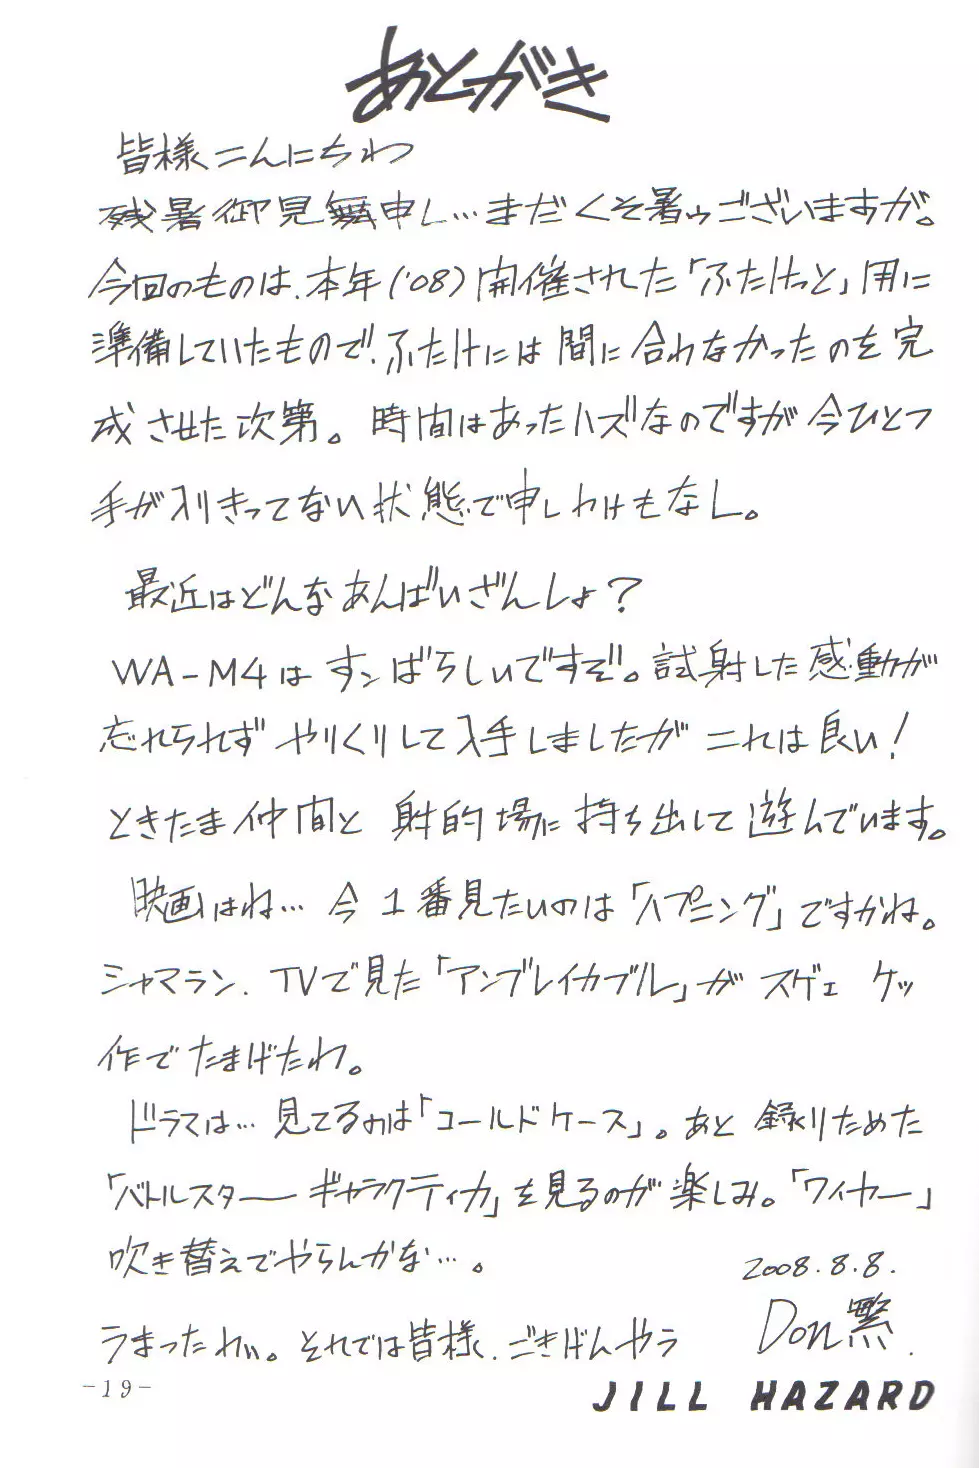 あとがき
皆様こんにちわ
残暑御見舞申し…まだくそ暑ゥございますが。
今回のものは、本年('08)開催された「ふたけっと」用に
準備していたもので、ふたけには間に合わなかったのを完
成させた次第。時間はあったハズなのですが今ひとつ
手が入りきってない状態で申しわけもなし。
最近はどんなあんばいざんしょ?
WA-M4はすンばらしいですぞ。試射した感動が
忘れられず やりくりして入手しましたが これは良い!
ときたま仲間と 射的場に持ち出して遊んでいます。
映画はね… 今1番見たいのは「ハプニング」ですかね。
シャマラン、TVで見た「アンブレイカブル」が スゲェ ケッ
作でたまげたわ。
ドラマは… 見てるのは「コールドケース」。あと 録りためた
「バトルスターギャラクティカ」を見るのが楽しみ。「ワイヤー」
吹き替えでやらんかな…。
2008.8.8.
うまったわい。それでは皆様、ごきげんやう
Don繁.
-19-
JILL HAZARD